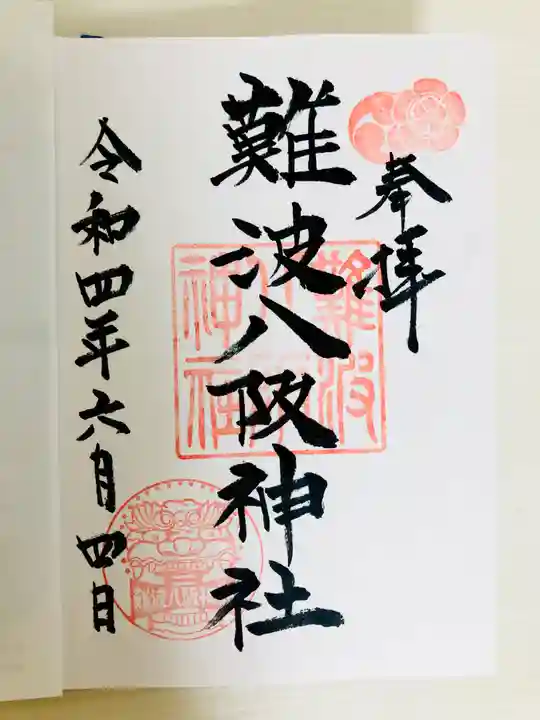 奉拝
難波八阪神社
令和四年六月四日
難波八阪神社